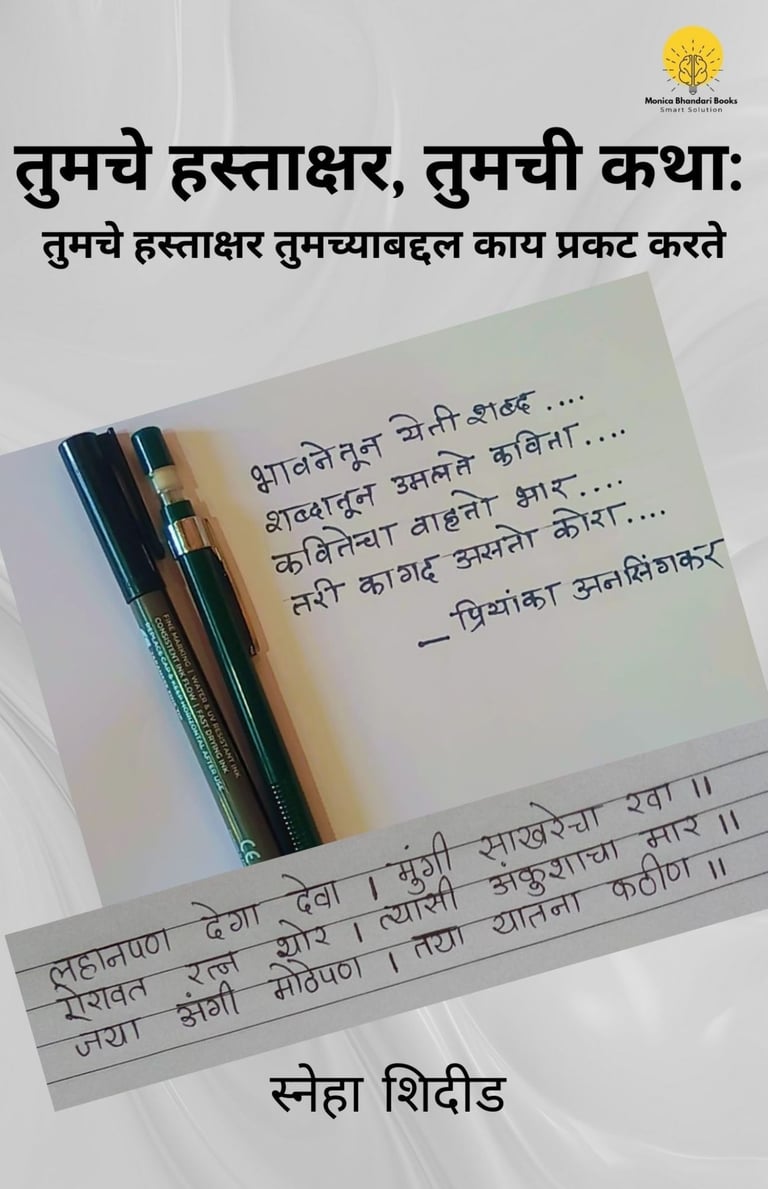 Monica Bhandari Books
Smart Solution
तुमचे हस्ताक्षर, तुमची कथा:
तुमचे हस्ताक्षर तुमच्याबद्दल काय प्रकट करते
भावनेतून येती शब्द ....
शब्दातून उमलते कविता....
कवितेचा वाहतो भार....
तरी कागद असतो कोरा....
_ प्रियांका अनसिंगकर
FINE MARKING | WATER & UV RESISTANT INK
CONSISTENT INK FLOW | FAST DRYING INK
REPLACE CAP & KEEP HORIZONTAL AFTER USE
CE
लहानपण देगा देवा । मुंगी साखरेचा रवा ॥
ऐरावत रत्न थोर । त्यासी अंकुशाचा मार ॥
जया अंगी मोठेपण । तया यातना कठीण ॥
स्नेहा शिदीड